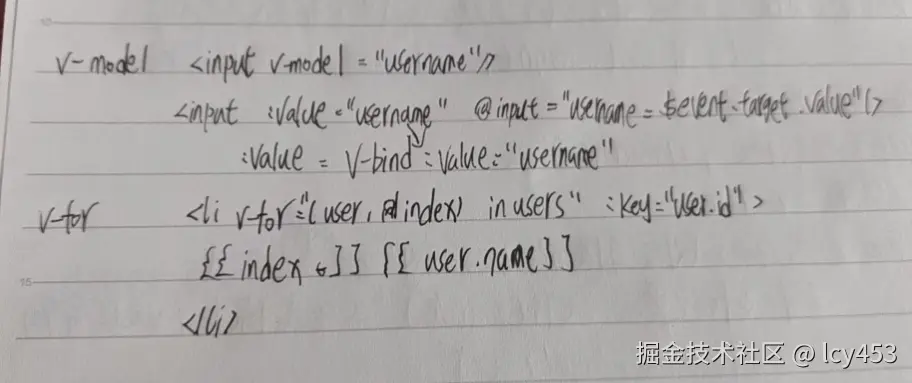 v-model <input v-model="username"/>
<input :value="username" @input="username=$event.target.value"/>
:value = v-bind:value="username"
v-for <li v-for="(user, index) in users" :key="user.id">
{{index}} {{user.name}}
</li>
15
掘金技术社区 @ lcy453